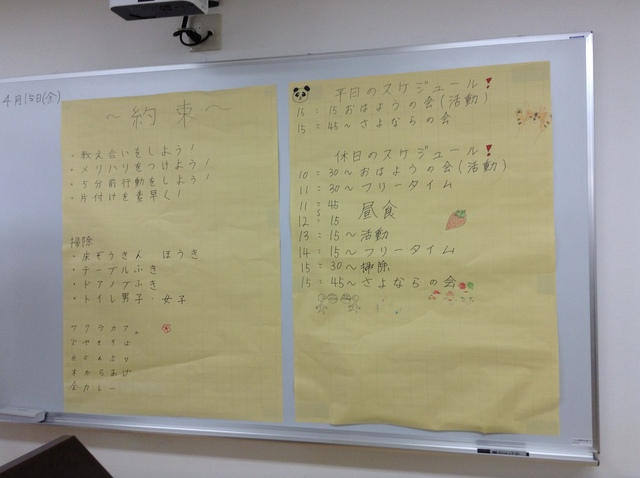 4月15日(金)
～約束～
・教え合いをしよう!
・メリハリをつけよう!
・5分前行動をしよう!
・片付けを素早く!
掃除
・床ぞうきん ほうき
・テーブルふき
・ドアノブふき
・トイレ男子・女子
木からあげ
金カレー
平日のスケジュール!
15:15おはようの会(活動)
15:45～さよならの会
休日のスケジュール!
10:30～おはようの会(活動)
11:30～フリータイム
11:45
昼食
12:15
13:15～活動
14:15～フリータイム
15:30～掃除
15:45～さよならの会